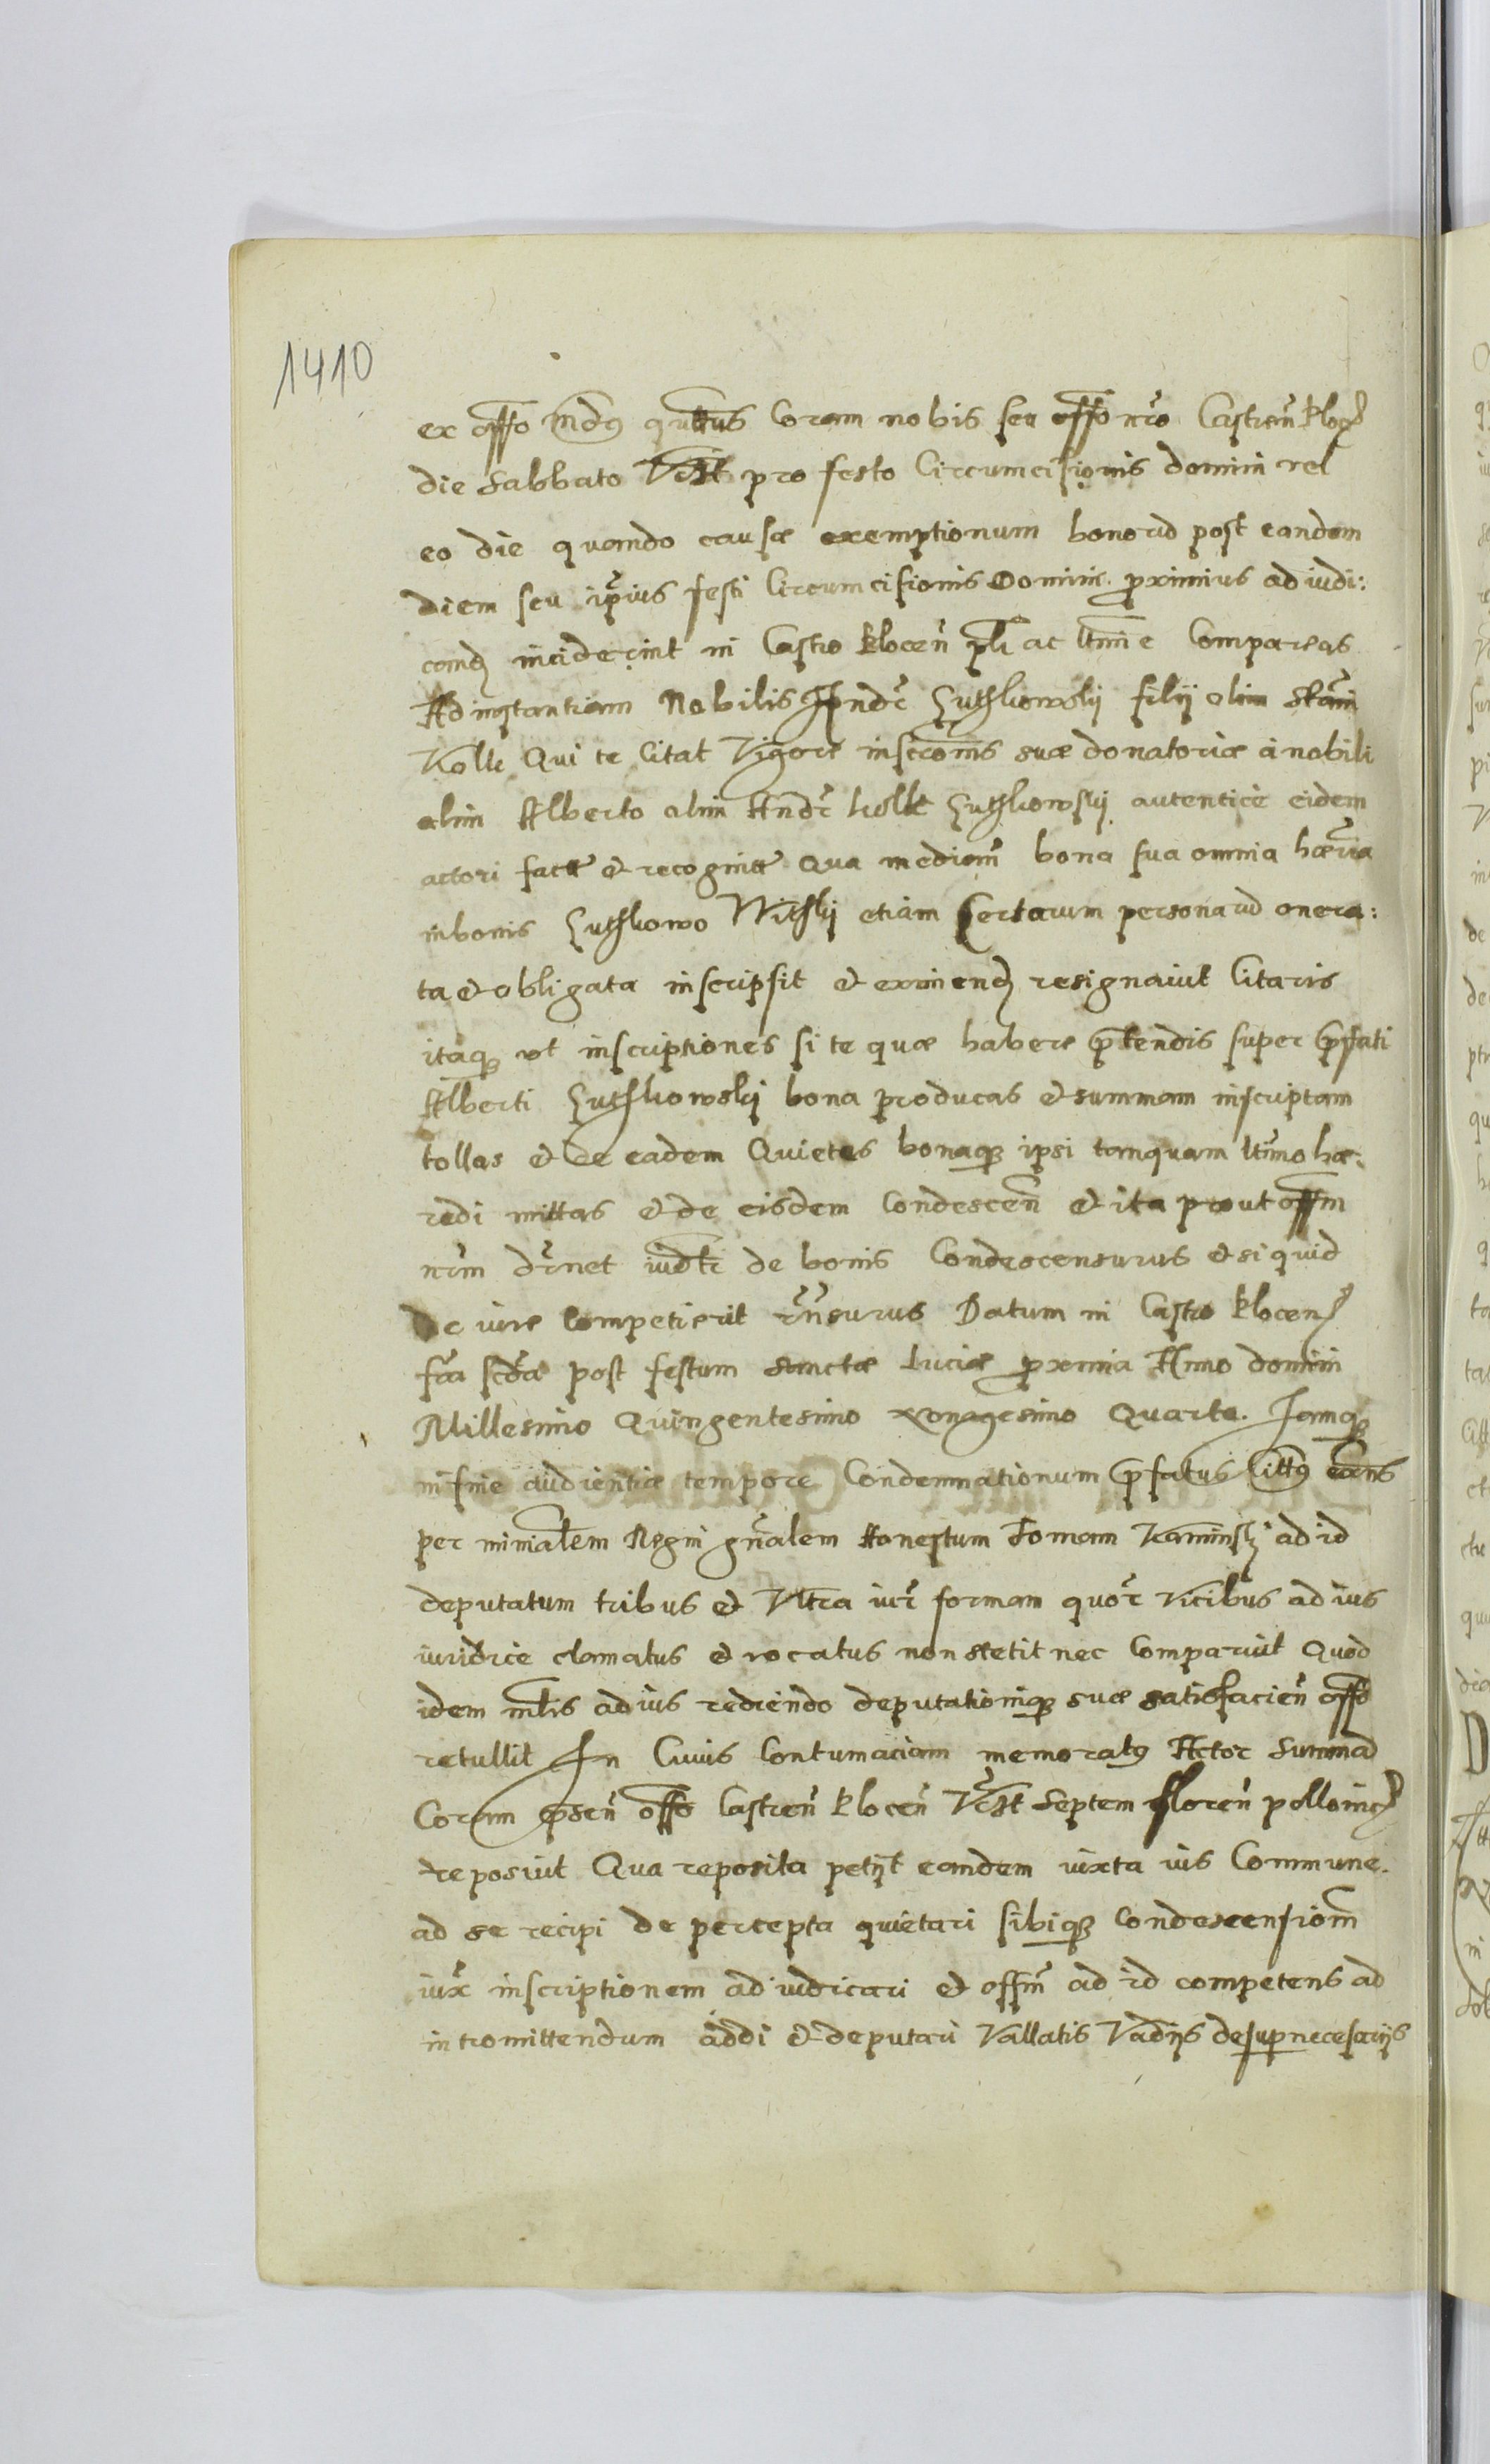 1410
ex offo mdus qutus Coram nobis seu offo nro Castren̄ kloc
die Sabbato pro festo Circumcisionis domini vel
eo die quando causæ exemptionum bonorū post eandem
diem seu ipsius festi Circumcisionis Domini proximius adiudi:
cand inciderint in Castro klocen̄ pli ac ltmie Compareas
Ad instantiam Nobilis Andr̄ filij olim Stani
Kolk Qui te Citat Vigore inscronis suæ donatoriæ à nobili
olim Alberto olim Andr̄ kolk autentice eidem
actori factæ et recognitæ Qua mediam̄ bona sua omnia hæria
in bonis etiam Certarum personarū onera:
ta et obligata inscripsit et eximend resignavit Citaris
itaq vt inscriptiones si te quæ habere prtendis super prfati
Alberti bona producas et summam inscriptam
tollas et de eadem Quietes bonaq ipsi tanquam ltimo hæ:
redi mittas et de eisdem Condescen̄ et ita prout offm
nrm drnet iudtr de bonis Condescensurus et si quid
De iure Competierit rn̄surus Datum in Castro klocen
fria scda post festum Sanctæ Luciæ proxima Anno domini
Millesimo Quingentesimo Nonagesimo Quarto. Iamq
in fine audientiæ tempore Condemnationum prfatus Citatus
per minialem Regni gn̄alem Honestum Tomam Kaminski ad id
deputatum tribus et Vltra iur̄ formam quor̄ Vicibus ad ius
iuridice clamatus et vocatus non stetit nec Comparuit Quod
idem mlis ad ius rediendo deputationiq suæ satisfacien̄ offo
retullit In Cuius Contumaciam memoratus Actor Summā
Coram prsen̄ offo Castren̄ klocen̄ Septem floren̄ pollonic
reposiuit Qua reposita petijt eandem iuxta ius Commune.
ad se recipi de percepta quietari sibiq Condescensiom̄
iux̄ inscriptionem adiudicari et offm ad id competens ad
intromittendum addi et deputari Vallatis Vadijs desup necesarijs